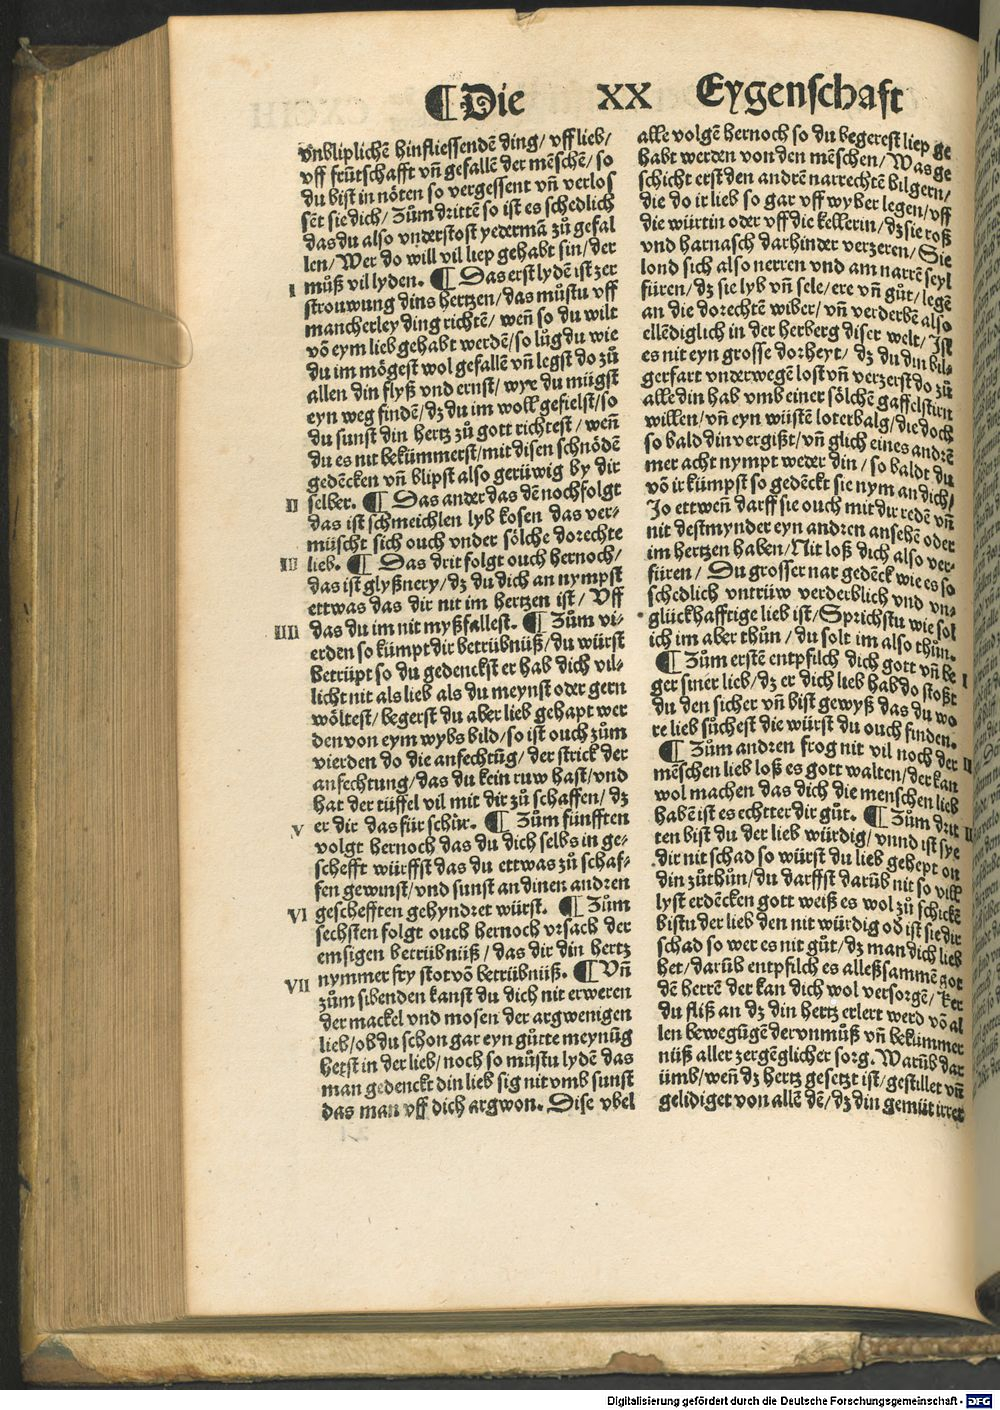 ¶Die XX Eygenschaft
vnbliplichē hinfliessendē ding/ vff lieb/
vff frūtschafft vñ gefallē der mēschē/ so
du bist in nöten so vergessent vñ verlos
sēt sie dich/ Zům drittē so ist es schedlich
das du also vnderstost yedermā zů gefal
len/ Wer do will vil liep gehabt sin/ der
můß vil lyden. ¶ Das erst lydē ist zer
I
strouwung dins hertzen/ das můstu vff
mancherley ding richtē/ weñ so du wilt
võ eym lieb gehabt werdē/ so lůg du wie
du im mögest wol gefallē vñ legst do zů
allen din flyß vnd ernst/ wye du mügst
eyn weg findē/ dz du im woll gefielst/ so
du sunst din hertz zů gott richtest/ weñ
du es nit bekümmerst/ mit disen schnödē
gedēcken vñ blipst also gerüwig by dir
II selber. ¶ Das ander das dē nochfolgt
das ist schmeichlen lyb kosen das ver-
müscht sich ouch vnder sölche dorechte
III lieb. ¶ Das drit folgt ouch hernoch/
das ist glyßnery/ dz du dich an nympst
ettwas das dir nit im hertzen ist/ Vff
IIII das du im nit myßfallest. ¶ Zům vi-
erden so kümpt dir betrübnüß/ du würst
betrüpt so du gedenckst er hab dich vil-
licht nit als lieb als du meynst oder gern
wöltest/ begerst du aber lieb gehapt wer
den von eym wybs bild/ so ist ouch zům
vierden do die anfechtūg/ der strick der
anfechtung/ das du kein ruw hast/ vnd
hat der tüffel vil mit dir zů schaffen/ dz
V er dir das für schür. ¶ Zům fünfften
volgt hernoch das du dich selbs in ge-
schefft würffst das du ettwas zů schaf-
fen gewinst/ vnd sunst an dinen andren
VI geschefften gehyndret würst. ¶ Züm
sechsten folgt ouch hernoch vrsach der
emsigen betrübnüß/ das dir din hertz
VII nymmer fry stot võ betrübnüß. ¶ Vñ
zům sibenden kanst du dich nit erweren
der mackel vnd mosen der argwenigen
lieb/ ob du schon gar eyn gůtte meynūg
hetst in der lieb/ noch so můstu lydē das
man gedenckt din lieb sig nit vmb sunst
das man vff dich argwon. Dise vbel
alle volgē hernoch so du begerest liep ge
habt werden von den mēschen/ Was ge
schicht erst den andrē narrechtē bilgern/
die do ir lieb so gar vff wyber legen/ vff
die würtin oder vff die kellerin/ dz sie roß
vnd harnasch darhinder verzeren/ Sie
lond sich also nerren vnd am narrē seyl
füren/ dz sie lyb vñ sele/ ere vñ gůt/ legē
an die dorechtē wiber/ vñ verderbē also
ellēdiglich in der herberg diser welt/ Ist
es nit eyn grosse dorheyt/ dz du din bil-
gerfart vnderwegē lost vñ verzerst do zů
alle din hab vmb einer sölchē gaffelstirn
willen/ vñ eyn wüstē loterbalg/ die doch
so bald din vergißt/ vñ glich eines andrē
mer acht nympt weder din/ so baldt du
võ ir kümpst so gedēckt sie nym an dich/
Jo ettweñ darff sie ouch mit dir redē vñ
nit destmynder eyn andren ansehē oder
im hertzen haben/ Nit loß dich also ver-
füren/ Du grosser nar gedēck wie es so
schedlich vntrüw verderblich vnd vn-
glückhafftige lieb ist/ Sprichstu wie sol
ich im aber thůn/ du solt im also thůn.
¶ Zům erstē entpfilch dich gott vñ be I
ger siner lieb/ dz er dich lieb hab do stoßt
du den sicher vñ bist gewyß das du wo
re lieb sůchest die würst du ouch finden.
¶ Zům andren frog nit vil noch der II
mēschen lieb loß es gott walten/ der kan
wol machen das dich die menschen lieb
habē ist es echtter dir gůt. ¶ Zům drit
ten bist du der lieb würdig/ vnnd ist sye
dir nit schad so würst du lieb gehept on
din zůthůn/ du darffst darūb nit so vill
lyst erdēcken gott weiß es wol zů schickē
bistu der lieb den nit würdig od ist sie dir
schad so wer es nit gůt/ dz man dich lieb
het/ darūb entpfilch es alleßsammē got
dē herrē der kan dich wol versorgē/ Ker
du fliß an dz din hertz erlert werd võ al
len bewegūgē der vnmůß vñ bekümmer
nüß aller zergēglicher sorg. Warūb dar
ümb/ weñ dz hertz gesetzt ist/ gestillet vñ
gelidiget von allē dē/ dz din gemüt irret
Digitalisierung gefördert durch die Deutsche Forschungsgemeinschaft - DFG